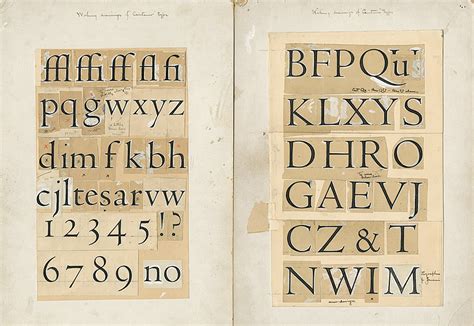 Working drawings of Centaur type
ffl ffi ff fl fi
pqgwxyz
dim f kbh
cjltesarvw
12345!?
67890 no
Working drawings of Centaur type
BFPQu
KLXYS
DHRO
GAEVJ
CZ&T
NWIM